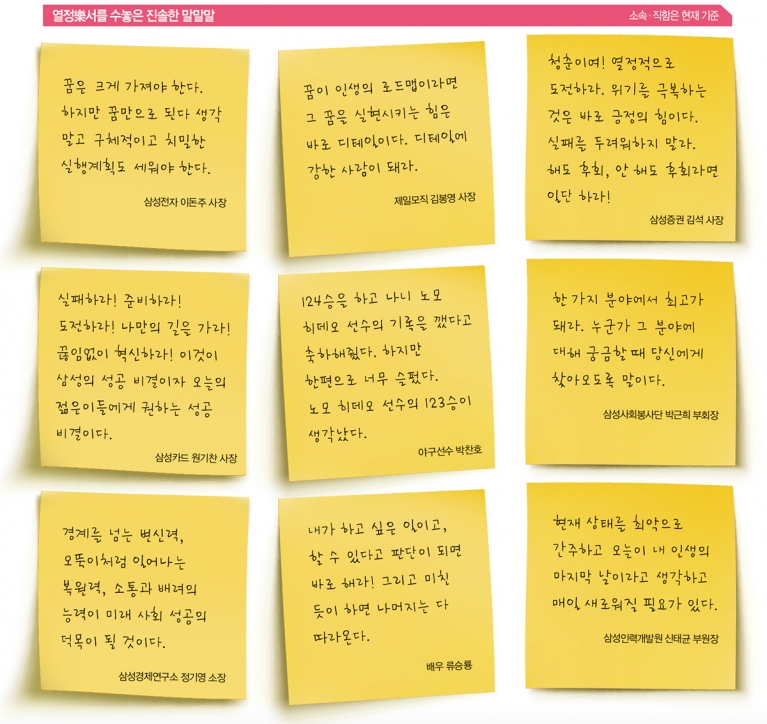 열정樂서를 수놓은 진솔한 말말말
소속·직함은 현재 기준
꿈은 크게 가져야 한다.
하지만 꿈만으로 된다 생각
말고 구체적이고 치밀한
실행계획도 세워야 한다.
삼성전자 이돈주 사장
꿈이 인생의 로드맵이라면
그 꿈을 실현시키는 힘은
바로 디테일이다. 디테일에
강한 사람이 돼라.
제일모직 김봉영 사장
청춘이여! 열정적으로
도전하라. 위기를 극복하는
것은 바로 긍정의 힘이다.
실패를 두려워하지 말라.
해도 후회, 안 해도 후회라면
일단 하라!
삼성증권 김석 사장
실패하라! 준비하라!
도전하라! 나만의 길을 가라!
끊임없이 혁신하라! 이것이
삼성의 성공 비결이자 오늘의
젊은이들에게 권하는 성공
비결이다.
삼성카드 원기찬 사장
124승을 하고 나니 노모
히데오 선수의 기록을 깼다고
축하해줬다. 하지만
한편으로 너무 슬펐다.
노모 히데오 선수의 123승이
생각났다.
야구선수 박찬호
한 가지 분야에서 최고가
돼라. 누군가 그 분야에
대해 궁금할 때 당신에게
찾아오도록 말이다.
삼성사회봉사단 박근희 부회장
경계를 넘는 변신력,
오뚝이처럼 일어나는
복원력, 소통과 배려의
능력이 미래 사회 성공의
덕목이 될 것이다.
삼성경제연구소 정기영 소장
내가 하고 싶은 일이고,
할 수 있다고 판단이 되면
바로 해라! 그리고 미친
듯이 하면 나머지는 다
따라온다.
배우 류승룡
현재 상태를 최악으로
간주하고 오늘이 내 인생의
마지막 날이라고 생각하고
매일 새로워질 필요가 있다.
삼성인력개발원 신태균 부원장